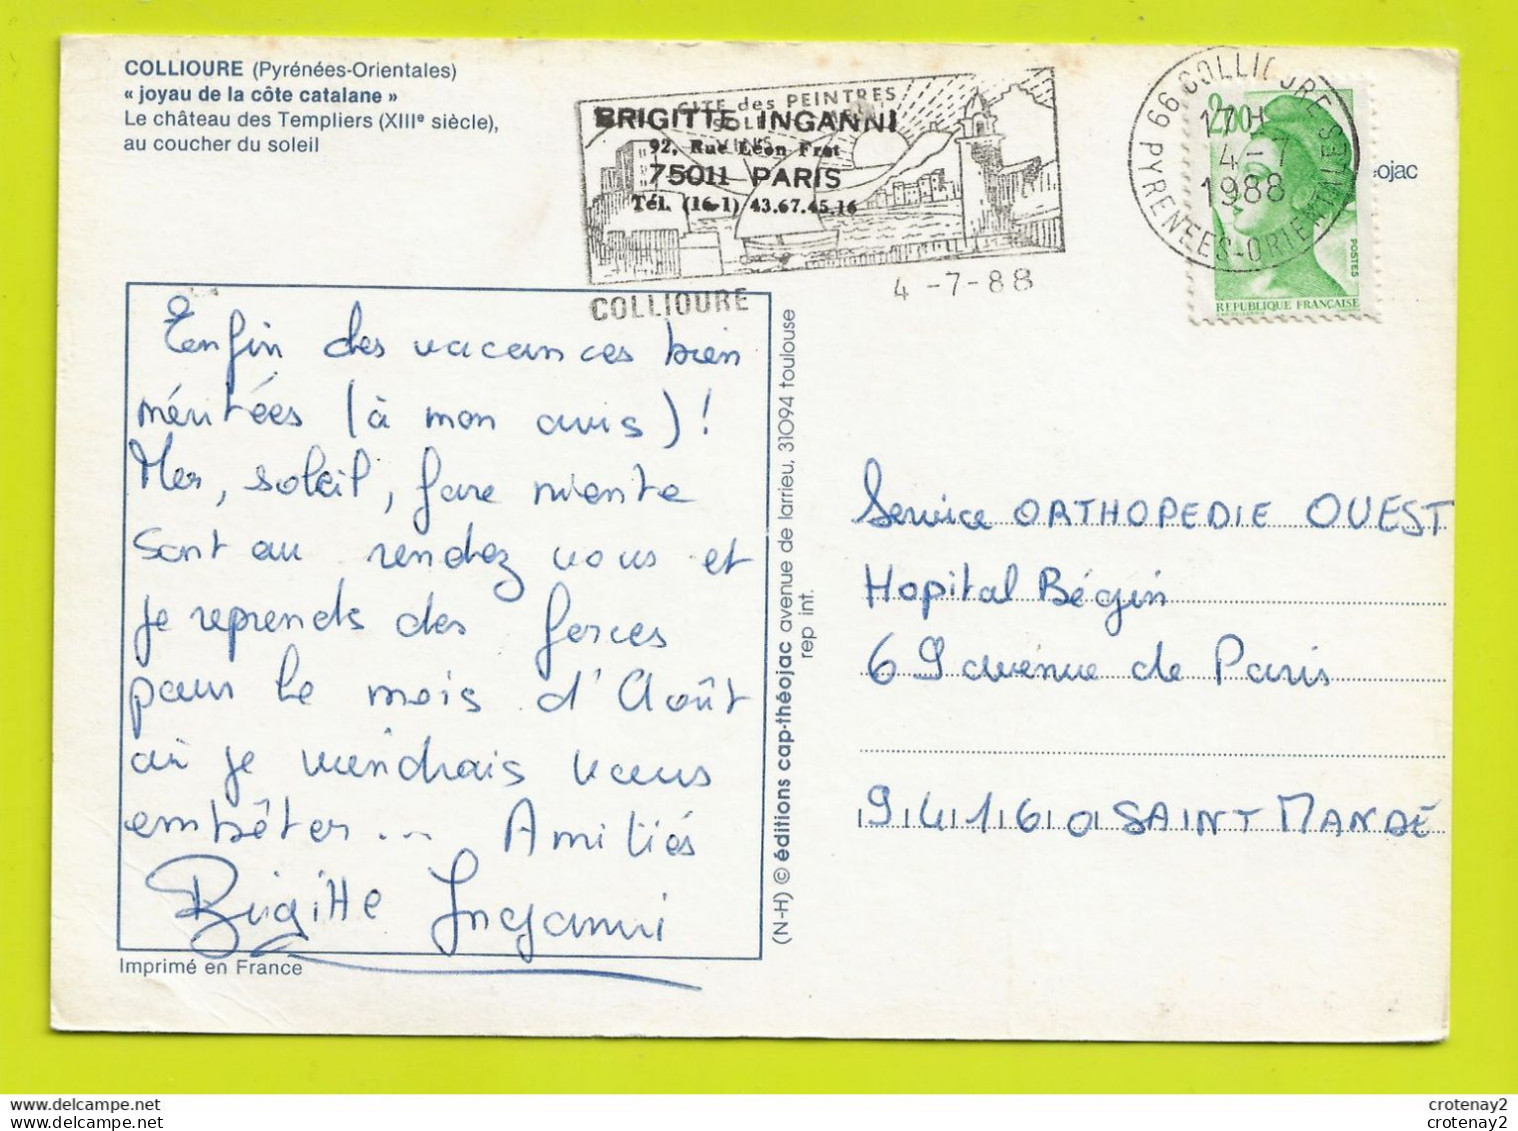 COLLIOURE (Pyrénées-Orientales)
« joyau de la côte catalane »
Le château des Templiers (XIIIe siècle),
au coucher du soleil
CITE des PEINTRES
SOLEIL
BRIGITTE INGANNI
92, Rue Léon Frot
75011 PARIS
Tél. (16-1) 43.67.45.16
COLLIOURE
4 -7-88
66 COLLIOURE
17H
4-7
1988
PYRENEES-ORIENTALES
2,00
POSTES
REPUBLIQUE FRANÇAISE
éojac
Enfin des vacances bien
méritées (à mon avis) !
Mer, soleil, fare niente
sont au rendez vous et
je reprends des forces
pour le mois d'Août
où je viendrais vous
embêter... Amitiés
Brigitte Inganni
Imprimé en France
(N-H) © éditions cap-théojac avenue de larrieu, 31094 toulouse
rep int.
Service ORTHOPEDIE OUEST
Hopital Bégin
69 avenue de Paris
94160 SAINT MANDÉ
crotenay2
crotenay2